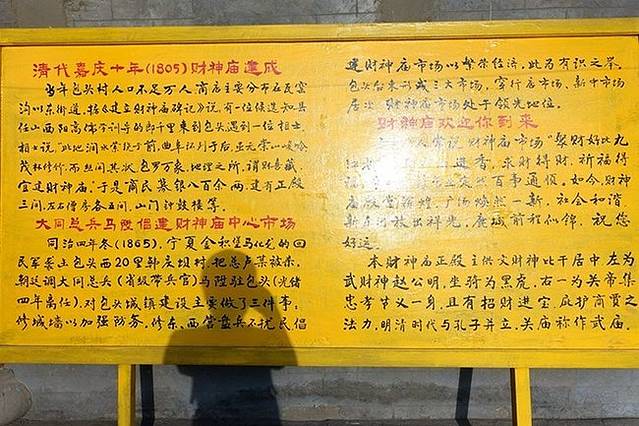 清代嘉庆十年(1805)财神庙建成
当年包头村人口不足万人,商店主要分布在瓦窑
沟以东街道,据《建立财神庙碑记》说,有一位候选知县
任山西阳高佛字训导的郎千里来到包头遇到一位相士,
相士说"此地涧水萦
茂林修竹,而丝间其状,包罗万象,地理之所,谓野善藏,
宜建财神庙。"于是商民募银八百余两,建有正殿
三间,左右僧房各五间,山门计鼓楼等。
大同总兵马陞倡建财神庙中心市场
同治四年冬(1865),宁夏金积堡马化龙的回
民军袭击包头西20里韩庆坝村,把总卢某被杀,
朝廷调大同总兵(省级带兵官)马陞驻包头(光绪
四年离任),对包头城镇建设主要做了三件事,
修城墙以加强防务,修东、西营盘兵不扰民倡
建财神庙市场以繁荣经济,此为有识之举,
包头后来形成三大市场,穿行店市场、新中市场
居次,财神庙市场处于领先地位。
财神庙欢迎你到来
人常说"财神庙市场"聚财好比九
进香,求财得财,祈福得
福,百事通恆。如今,财神
庙殿堂辉煌,广场焕然一新,社会和谐
祥光,鹿城前程似锦,祝您
好运。
本财神庙正殿主供文财神比干居中,左为
武财神赵公明,坐骑为黑虎,右一为关帝集
忠孝节义一身,且有招财进宝,庇护商贾之
法力,明清时代与孔子并立,关庙称作武庙。